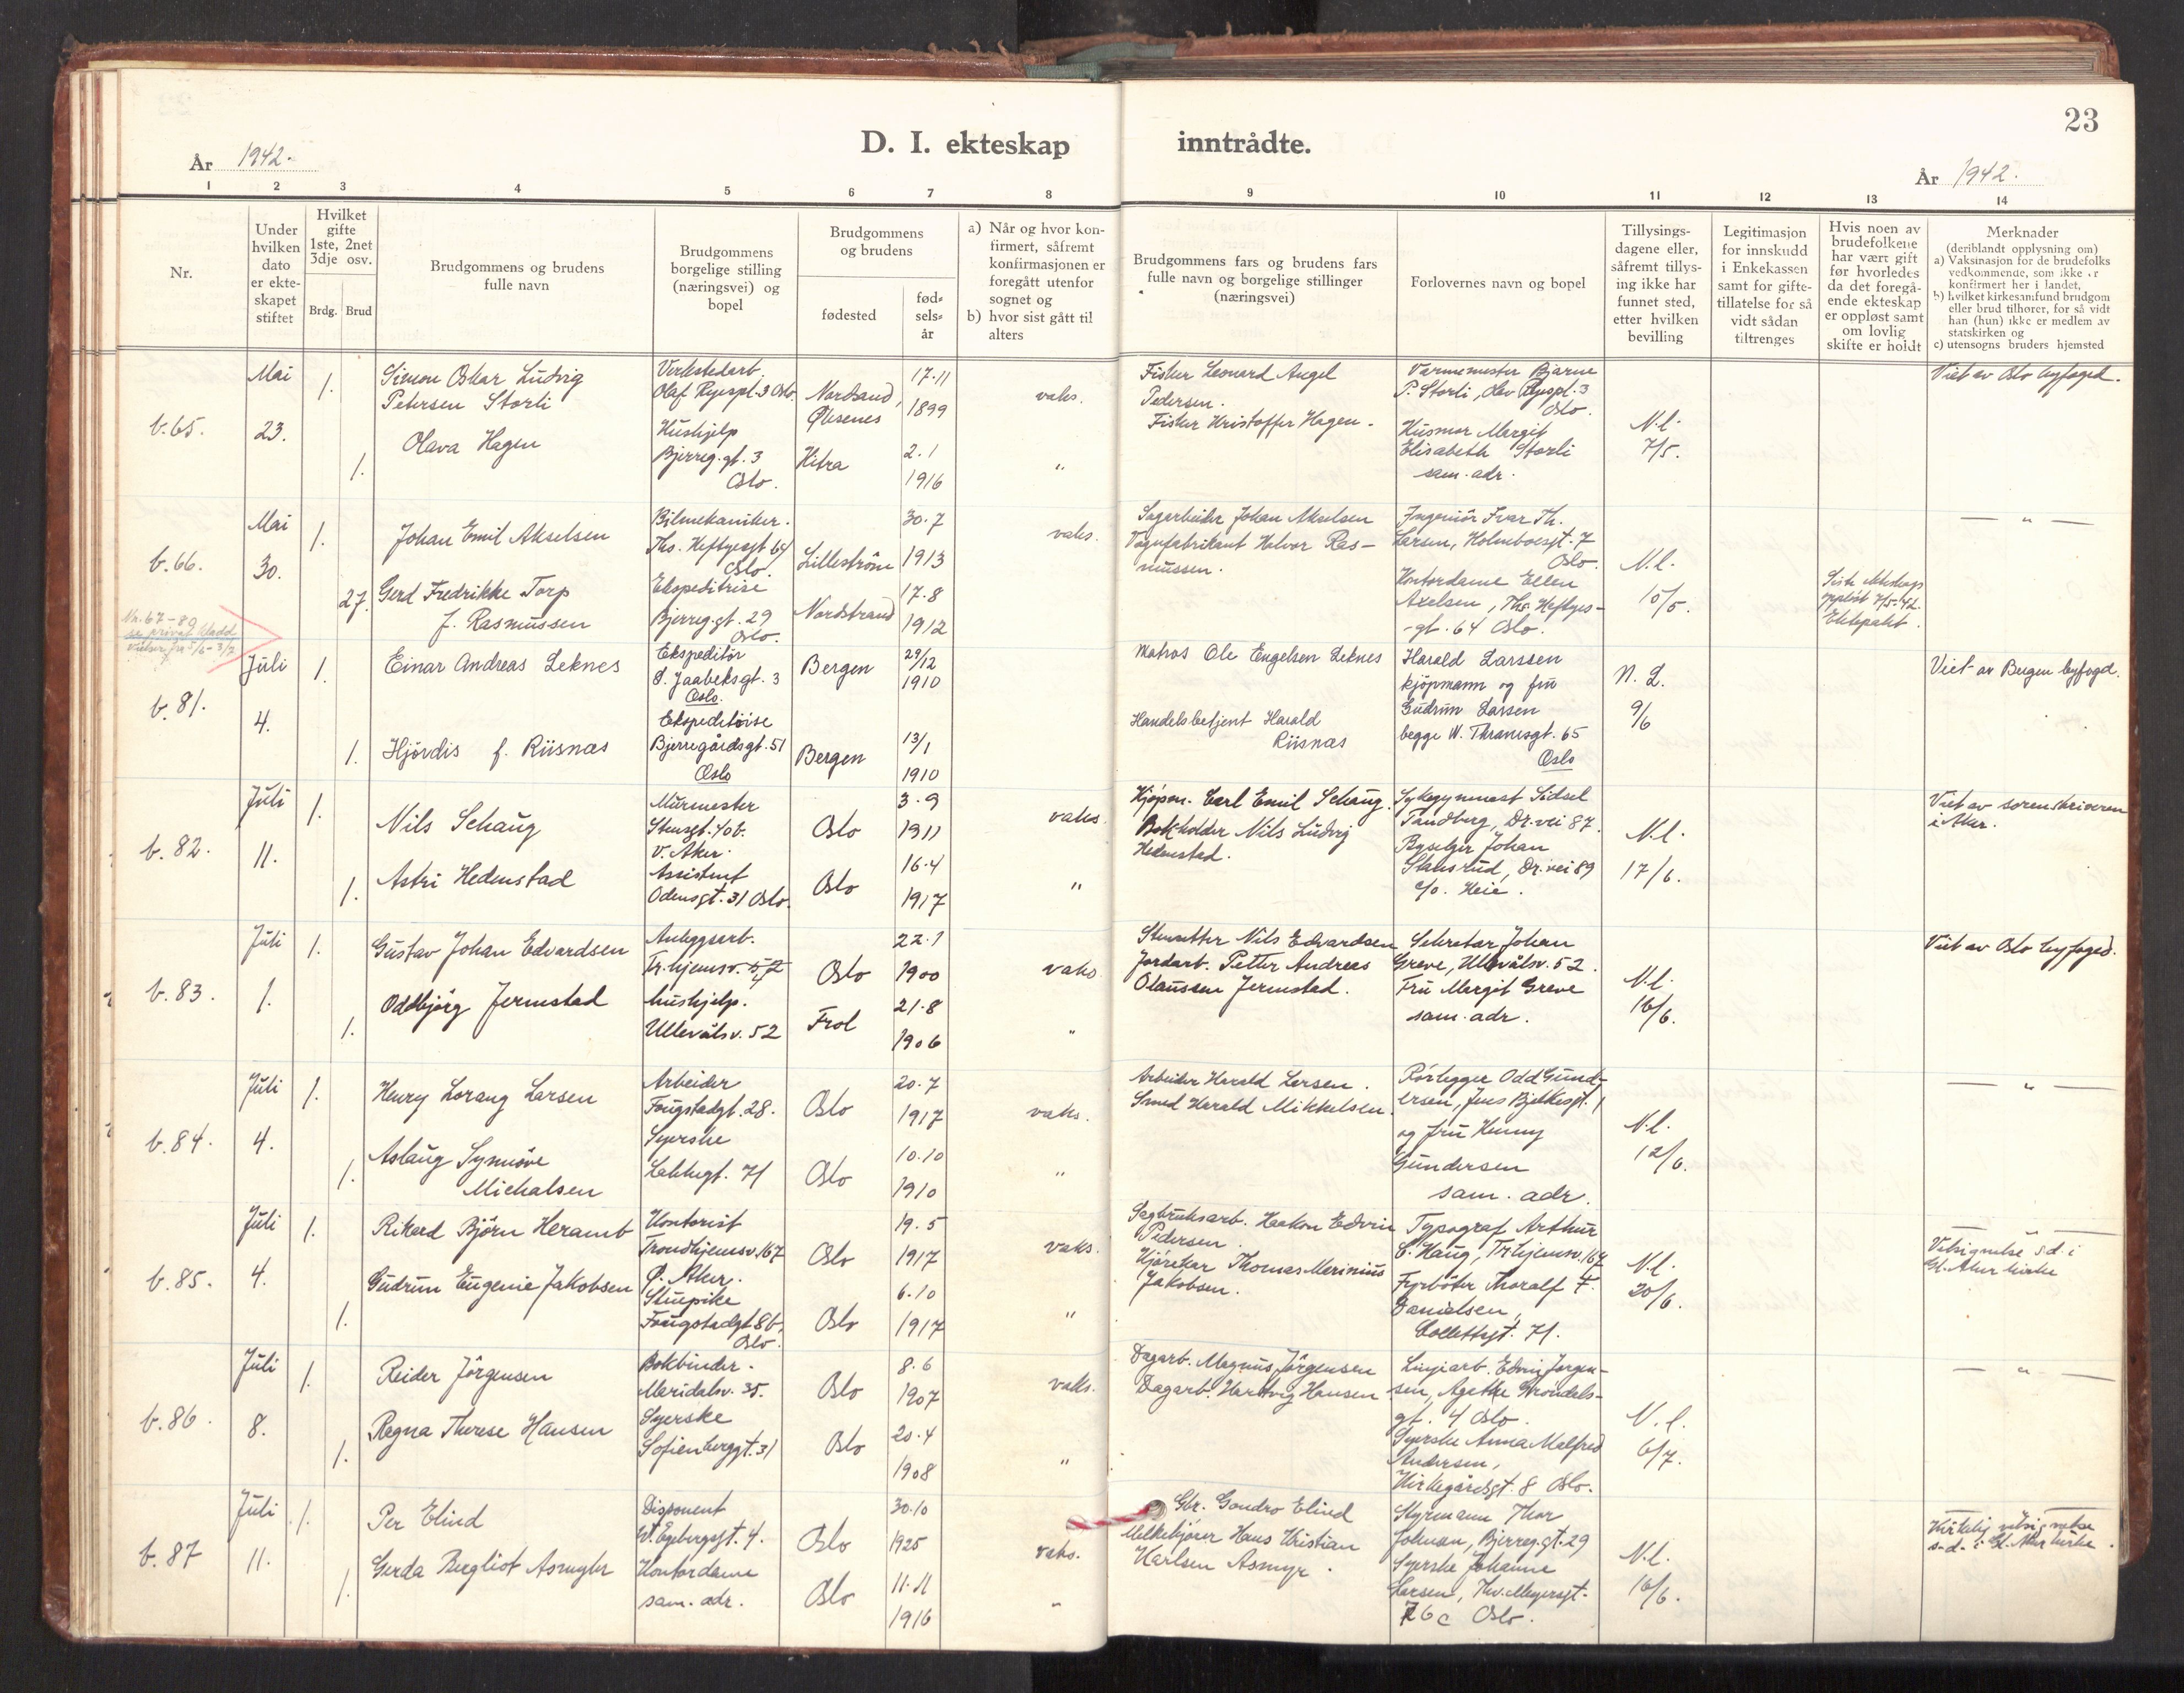 23
D. I. ekteskap inntrådte.
År 1942.
År 1942.
1 2 3 4 5 6 7 8 9 10 11 12 13 14
Nr.
Under
hvilken
dato
er ekte-
skapet
stiftet
Hvilket
gifte
1ste, 2net
3dje osv.
Brdg. Brud
Brudgommens og brudens
fulle navn
Brudgommens
borgelige stilling
(næringsvei) og
bopel
Brudgommens
og brudens
fødested
fød-
sels-
år
a) Når og hvor kon-
firmert, såfremt
konfirmasjonen er
foregått utenfor
sognet og
b) hvor sist gått til
alters
Brudgommens fars og brudens fars
fulle navn og borgelige stillinger
(næringsvei)
Forlovernes navn og bopel
Tillysings-
dagene eller,
såfremt tillys-
ing ikke har
funnet sted,
etter hvilken
bevilling
Legitimasjon
for innskudd
i Enkekassen
samt for gifte-
tillatelse for så
vidt sådan
tiltrenges
Hvis noen av
brudefolkene
har vært gift
før hvorledes
da det foregå-
ende ekteskap
er oppløst samt
om lovlig
skifte er holdt
Merknader
(deriblandt opplysning om)
a) Vaksinasjon for de brudefolks
vedkommende, som ikke er
konfirmert her i landet,
b) hvilket kirkesamfund brudgom
eller brud tilhører, for så vidt
han (hun) ikke er medlem av
statskirken og
c) utensogns bruders hjemsted
b.65.
Mai
23.
1.
1.
Simon Oskar Ludvig
Petersen Storli
Olava Hagen
Verkstedarb.
Olaf Ryespl. 3 Oslo.
Hushjelp
Bjerreg. gt. 3
Oslo.
Nordsand,
Øksenes
Hitra
17-11
1899
2.1
1916
vaks.
"
Fisker Leonard Angel
Pedersen.
Fisker Kristoffer Hagen.
Varmemester Bjarne
P. Storli, Olav Ryespl. 3
Oslo.
Husmor Margit
Elisabeth Storli
sam. adr.
N.l.
7/5.
Viet av Oslo byfoged.
b.66.
Mai
30.
1.
27.
Johan Emil Akselsen
Gerd Fredrikke Torp
f. Rasmussen
Bilmekaniker.
Ths. Heftyesgt 64
Oslo.
Ekspeditrise
Bjerreg. gt. 29
Oslo.
Lilleström
Nordstrand
30.7
1913
17.8
1912
vaks.
Sagarbeider Johan Akselsen
Vognfabrikant Halvor Ras-
mussen.
Ingeniör Ivar Th.
Larsen, Holmboesgt. 7
Oslo.
Kontordame Ellen
Axelsen, Ths. Heftyes-
-gt. 64 Oslo.
N.l.
15/5.
Siste ekteskap
oppløst 7/5-42.
Ektepakt.
— " —
Nr. 67-89
se privat kladd
Vielser fra 5/6 - 3/7
b.81.
Juli
4.
1.
1.
Einar Andreas Leknes
Hjördis f. Riisnæs
Ekspeditör
S. Jaabeksgt. 3
Oslo.
Ekspeditöise
Bjerregårdsgt. 51
Oslo
Bergen
Bergen
29/12
1910
13/1
1910
Matros Ole Engelsen Leknes
Handelsbetjent Harald
Riisnæs
Harald Larssen
kjöpmann og fru
Gudrun Larsen
begge M. Thranesgt. 65
Oslo
N. L.
9/6
Viet av Bergen byfogd.
b.82.
Juli
11.
1.
1.
Nils Schaug
Astri Hedenstad
Murmester
Stensgt. 40b.
V. Aker.
Assistent
Odensgt. 31 Oslo.
Oslo
Oslo
3.9
1911
16.4
1917
vaks.
"
Kjöpm. Carl Emil Schaug.
Bokholder Nils Ludvig
Hedenstad.
Sykegymnast Sidsel
Tandberg, Dr. vei 87.
Byselger Johan
Stensrud, Dr. vei 89
c/o. Heie.
N.l.
17/6.
Viet av sorenskriveren
i Aker.
b.83.
Juli
1.
1.
1.
Gustav Johan Edvardsen
Oddbjörg Jermstad
Anleggsarb.
Tr.hjemsv. 52
hushjelp.
Ullevålsv. 52
Oslo
Frol
22.1
1900
21.8
1906
vaks
"
Stensetter Nils Edvardsen
Jordarb. Petter Andreas
Olaussen Jermstad.
Sekretær Johan
Greve, Ullevålsv. 52.
Fru Margit Greve
sam. adr.
N.l.
16/6.
Viet av Oslo byfoged.
b.84.
Juli
4.
1.
1.
Henry Lorang Larsen
Aslaug Synnöve
Michalsen
Arbeider
Fougstadgt. 28.
Syerske
Lakkegt. 71
Oslo
Oslo
20.7
1917
10.10
1910
vaks.
"
Arbeider Harald Larsen.
Smed Harald Mikkelsen.
Rörlegger Odd Gund-
ersen, Jens Bjelkesgt. 1
og fru Henny
Gundersen
sam. adr.
N.l.
12/6.
— " —
b.85.
Juli
4.
1.
1.
Rikard Björn Heramb
Gudrun Eugenie Jakobsen
Kontorist
Trondhjemsv. 167
Ö. Aker.
Stuepike
Fougstadgt 8b,
Oslo.
Oslo
Oslo
19.5
1917
6.10
1917
vaks.
"
Sagbruksarb. Haakon Edvin
Pedersen.
Kjörekar Thomas Merinius
Jakobsen.
Typograf Arthur
C. Haug, Tr.hjemsv. 167
Fyrböter Thoralf F.
Danielsen,
Collettsgt. 71.
N.l.
20/6.
— " —
Velsignelse s.d. i
Gl. Aker kirke
b.86.
Juli
8.
1.
1.
Reider Jörgensen
Ragna Therese Hansen
Bokbinder.
Maridalsv. 35.
Syerske
Sofienberggt. 31
Oslo
Oslo
8.6
1907
20.4
1908
vaks.
"
Dagarb. Magnus Jörgensen
Dagarb. Hartvig Hansen
Linjearb. Edvin Jorgen-
sen, Agathe Gröndals-
gt. 4 Oslo.
Syerske Anna Malfred
Andersen,
Kirkegårdsgt. 8 Oslo.
N.l.
6/7.
— " —
b.87
Juli
11.
1.
1.
Per Elind
Gerda Bergliot Asmyhr
Disponent
W. Egebergsgt. 4.
Kontordame
sam. adr.
Oslo
Oslo
30.10
1925
11.11
1916
vaks.
"
Gbr. Sondro Elind
Melkekjörer Hans Kristian
Karlsen Asmyr.
Styrmann Thor
Johnsen, Bjerreg. gt. 29
Syerske Johanne
Larsen, Thv. Meyersgt.
76c Oslo.
N.l.
16/6.
— " —
Kirkelig velsignelse
s.d. i Gl. Aker kirke.